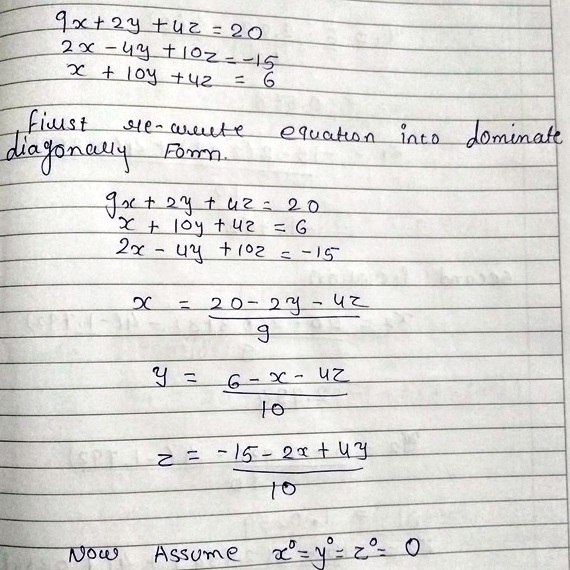 9x + 2y + 4z = 20
2x - 4y + 10z = -15
x + 10y + 4z = 6
First re-write equation into dominate
diagonally Form.
9x + 2y + 4z = 20
x + 10y + 4z = 6
2x - 4y + 10z = -15
x = 20 - 2y - 4z
9
y = 6 - x - 4z
10
z = -15 - 2x + 4y
10
Now Assume x⁰ = y⁰ = z⁰ = 0